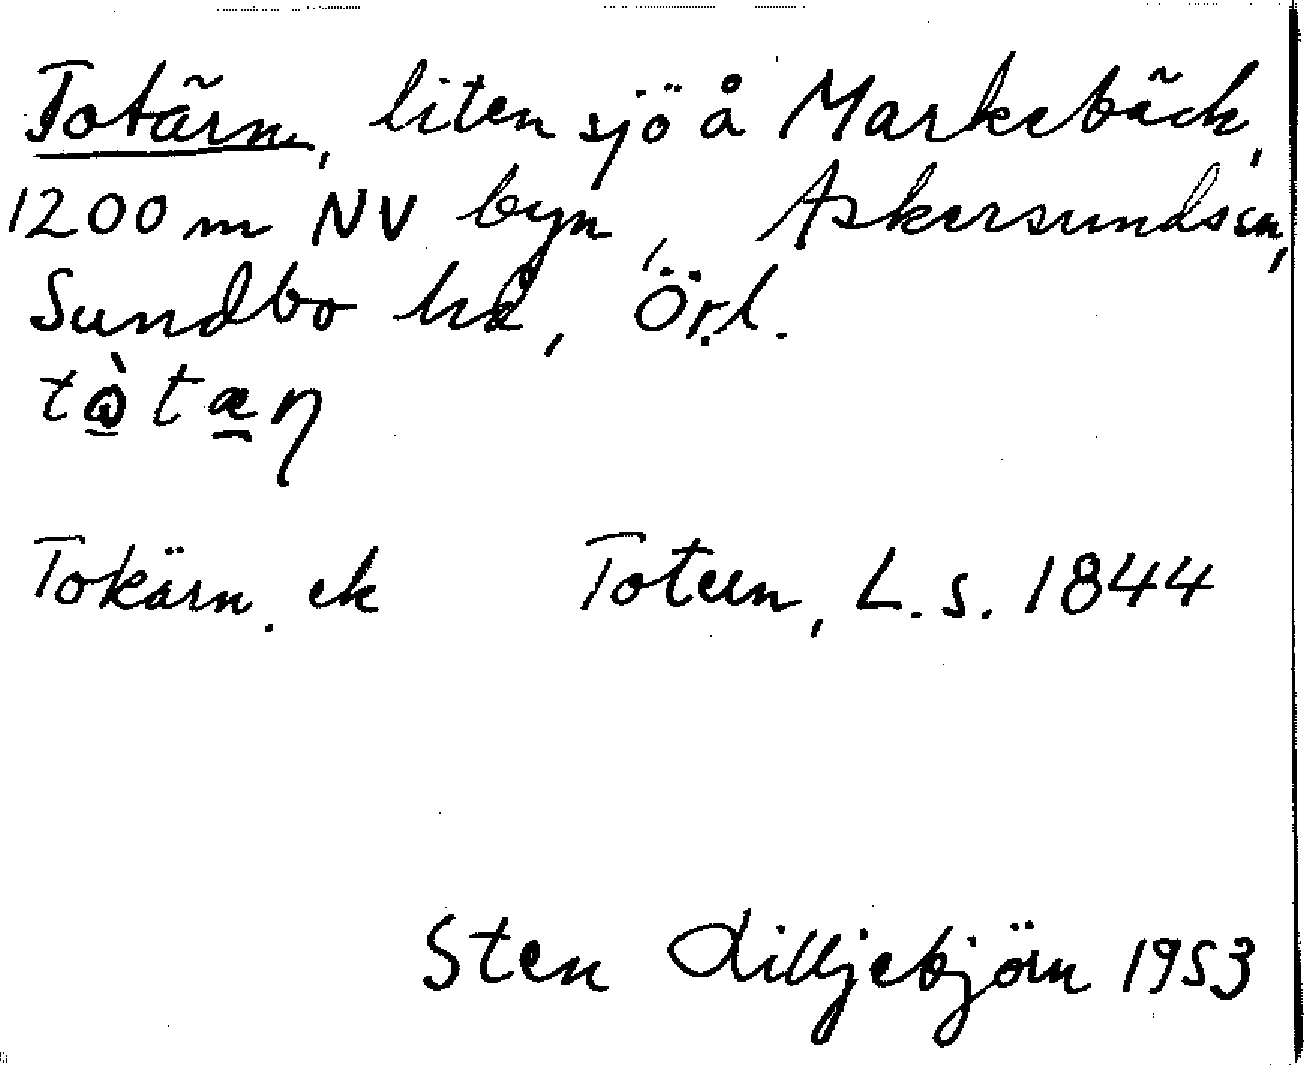 Totärn, liten sjö å Markebäck,
1200 m NV byn, Askersunds sn,
Sundbo hd, Örl.
tò̱tæ̱ɳ
Tokärn. ek Toteen, L.s. 1844
Sten Lilljebjörn 1953